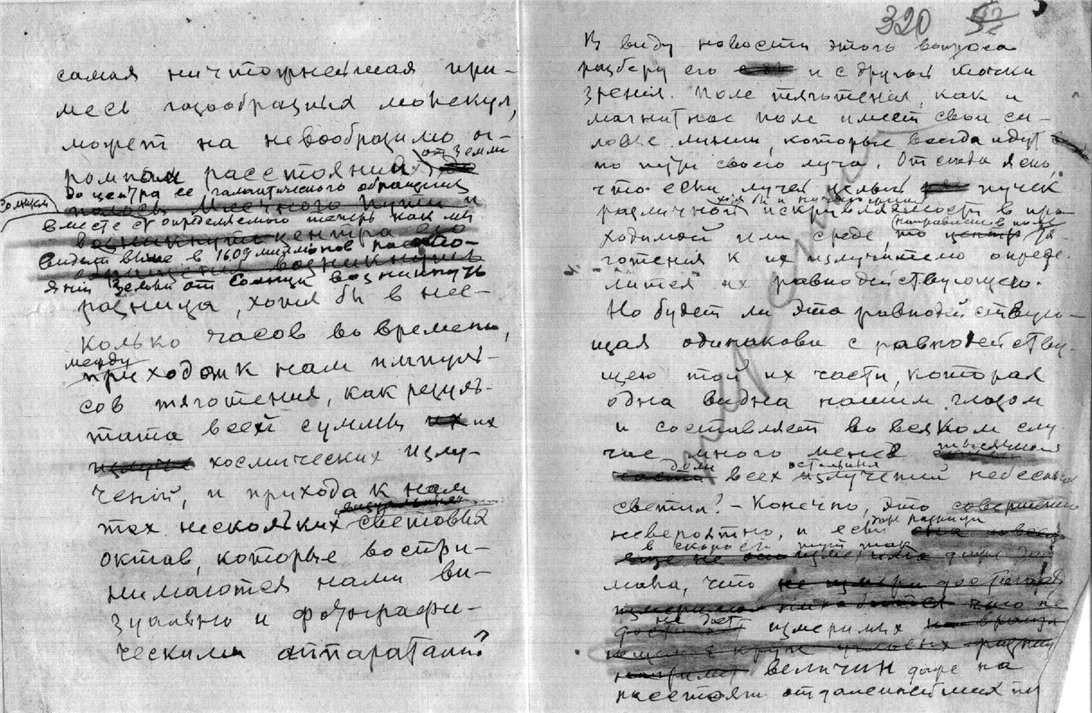 самая ничтожнейшая при-
месь газообразных молекул,
может на невообразимо о-
громном расстоянии от Земли
до центра ее галактического обращения
вместе с определяемого теперь как мы
видели выше в 1609 миллионов расстоя-
яний Земли от Солнца возникнуть
разница, хотя бы в нес-
колько часов во времени,
между
приходом к нам импуль-
сов тяготения, как резуль-
тата всей суммы их
космических излу-
чений, и прихода к нам
тех нескольких световых
октав, которые воспри-
нимаются нами ви-
зуально и фотографи-
ческими аппаратами?
320
В виду новости этого вопроса
разберу его и с другой точки
зрения. Поле тяготения, как и
магнитное поле имеет свои си-
ловые линии, которые всегда идут
по пути своего луча. Отсюда ясно,
что если лучей целый пучек
различной искривляемости в про-
ходимой ими среде, то направление тя-
готения к их излучителю опреде-
лится их равнодействующею.
Но будет ли эта равнодействую-
щая одинакова с равнодейству-
щею той их части, которая
одна видна нашим глазом
и составляет во всяком слу
чае много менее
доли всех остальных излучений небесных
светил? - Конечно, это совершенно
невероятно, и если даже разница
в скорости
мала, что
не даст измеримых
величин даже на
расстоянии отдаленнейших